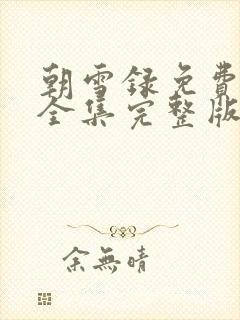 朝雪録免費
全集完整版
余無晴